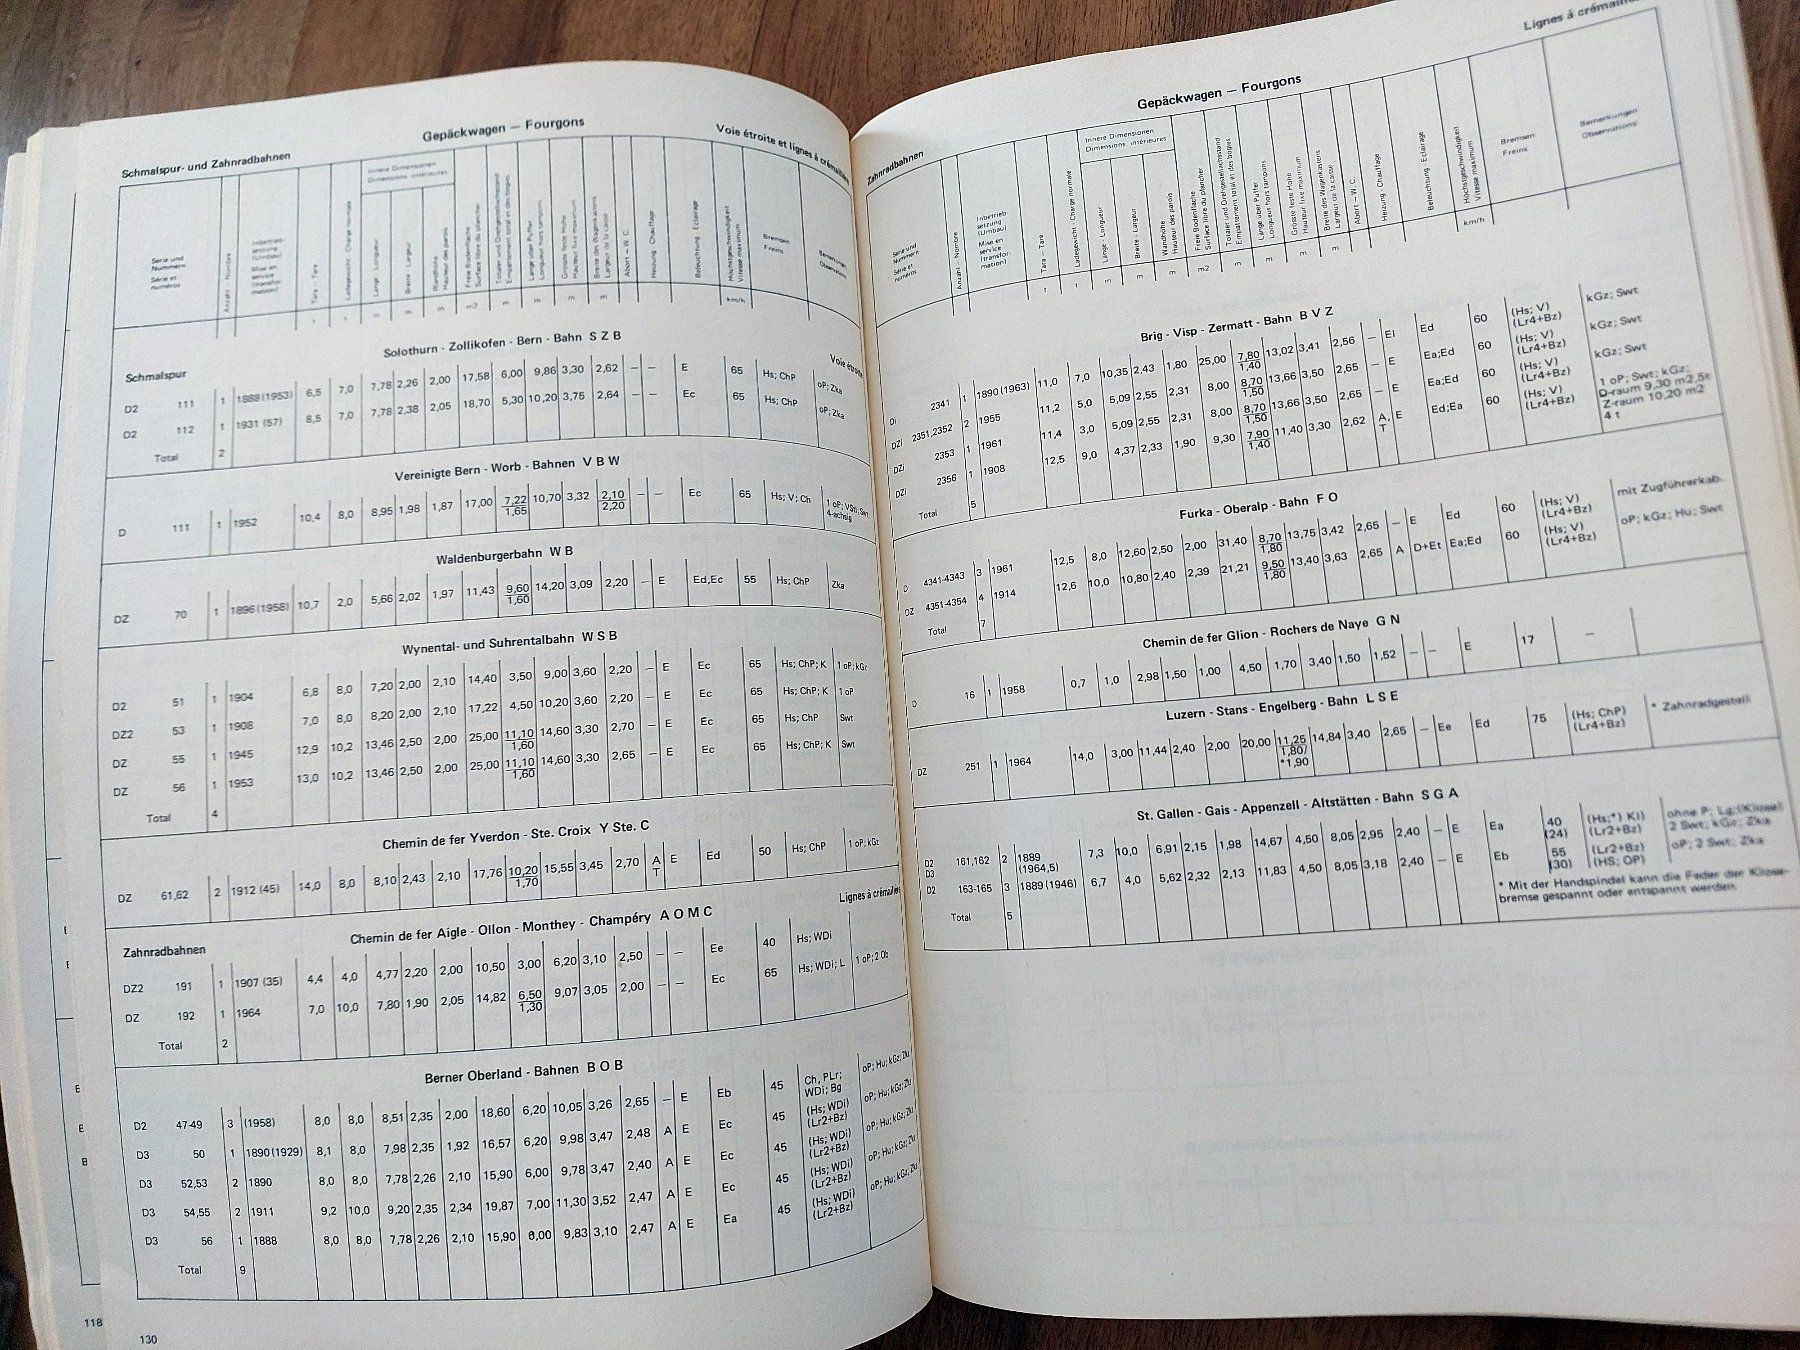 Gepäckwagen — Fourgons
Schmalspur- und Zahnradbahnen
Voie étroite et lignes à crémaillère
Serie und Nummern
Série et numéros
Anzahl - Nombre
Inbetrieb-
setzung
(Umbau)
Mise en
service
(transfor-
mation)
Tara - Tare
Ladegewicht - Charge normale
Innere Dimensionen
Dimensions intérieures
Länge - Longueur
Breite - Largeur
Wandhöhe
Hauteur des parois
Freie Bodenfläche
Surface libre du plancher
Totaler und Drehgestellachsstand
Empattement total et des bogies
Länge über Puffer
Longueur hors tampons
Grösste feste Höhe
Hauteur fixe maximum
Breite des Wagenkastens
Largeur de la caisse
Abort - W. C.
Heizung - Chauffage
Beleuchtung - Eclairage
Höchstgeschwindigkeit
Vitesse maximum
Bremsen
Freins
Bemerkungen
Observations
t t m m m m2 m m m m km/h
Solothurn - Zollikofen - Bern - Bahn S Z B
Schmalspur
Voie étroite
D2 111 1 1888 (1953) 6,5 7,0 7,78 2,26 2,00 17,58 6,00 9,86 3,30 2,62 — — E 65 Hs; ChP oP; Zka
D2 112 1 1931 (57) 8,5 7,0 7,78 2,38 2,05 18,70 5,30 10,20 3,75 2,64 — — Ec 65 Hs; ChP oP; Zka
Total 2
Vereinigte Bern - Worb - Bahnen V B W
D 111 1 1952 10,4 8,0 8,95 1,98 1,87 17,00 7,22/1,65 10,70 3,32 2,10/2,20 — — Ec 65 Hs; V; Ch 1 oP; VSt; Swt
4-achsig
Waldenburgerbahn W B
DZ 70 1 1896 (1958) 10,7 2,0 5,66 2,02 1,97 11,43 9,60/1,60 14,20 3,09 2,20 — E Ed,Ec 55 Hs; ChP Zka
Wynental- und Suhrentalbahn W S B
D2 51 1 1904 6,8 8,0 7,20 2,00 2,10 14,40 3,50 9,00 3,60 2,20 — E Ec 65 Hs; ChP; K 1 oP; kGz
DZ2 53 1 1908 7,0 8,0 8,20 2,00 2,10 17,22 4,50 10,20 3,60 2,20 — E Ec 65 Hs; ChP; K 1 oP
DZ 55 1 1945 12,9 10,2 13,46 2,50 2,00 25,00 11,10/1,60 14,60 3,30 2,70 — E Ec 65 Hs; ChP Swt
DZ 56 1 1953 13,0 10,2 13,46 2,50 2,00 25,00 11,10/1,60 14,60 3,30 2,65 — E Ec 65 Hs; ChP; K Swt
Total 4
Chemin de fer Yverdon - Ste. Croix Y Ste. C
DZ 61,62 2 1912 (45) 14,0 8,0 8,10 2,43 2,10 17,76 10,20/1,70 15,55 3,45 2,70 A T E Ed 50 Hs; ChP 1 oP; kGz
Lignes à crémaillère
Chemin de fer Aigle - Ollon - Monthey - Champéry A O M C
Zahnradbahnen
DZ2 191 1 1907 (35) 4,4 4,0 4,77 2,20 2,00 10,50 3,00 6,20 3,10 2,50 — — Ee 40 Hs; WDi
DZ 192 1 1964 7,0 10,0 7,80 1,90 2,05 14,82 6,50/1,30 9,07 3,05 2,00 — — Ec 65 Hs; WDi; L 1 oP; 2 Ob
Total 2
Berner Oberland - Bahnen B O B
D2 47-49 3 (1958) 8,0 8,0 8,51 2,35 2,00 18,60 6,20 10,05 3,26 2,65 — E Eb 45 Ch, PLr; WDi; Bg oP; Hu; kGz; Zka
D3 50 1 1890 (1929) 8,1 8,0 7,98 2,35 1,92 16,57 6,20 9,98 3,47 2,48 A E Ec 45 (Hs; WDi) (Lr2+Bz) oP; Hu; kGz; Zka
D3 52,53 2 1890 8,0 8,0 7,78 2,26 2,10 15,90 6,00 9,78 3,47 2,40 A E Ec 45 (Hs; WDi) (Lr2+Bz) oP; Hu; kGz; Zka
D3 54,55 2 1911 9,2 10,0 9,20 2,35 2,34 19,87 7,00 11,30 3,52 2,47 A E Ec 45 (Hs; WDi) (Lr2+Bz) oP; Hu; kGz; Zka
D3 56 1 1888 8,0 8,0 7,78 2,26 2,10 15,90 6,00 9,83 3,10 2,47 A E Ea 45 (Hs; WDi) (Lr2+Bz) oP; Hu; kGz; Zka
Total 9
118
130
Gepäckwagen — Fourgons
Zahnradbahnen
Lignes à crémaillère
Serie und Nummern
Série et numéros
Anzahl - Nombre
Inbetrieb-
setzung
(Umbau)
Mise en
service
(transfor-
mation)
Tara — Tare
Ladegewicht - Charge normale
Innere Dimensionen
Dimensions intérieures
Länge - Longueur
Breite - Largeur
Wandhöhe
Hauteur des parois
Freie Bodenfläche
Surface libre du plancher
Totaler und Drehgestellachsstand
Empattement total et des bogies
Länge über Puffer
Longueur hors tampons
Grösste feste Höhe
Hauteur fixe maximum
Breite des Wagenkastens
Largeur de la caisse
Abort — W. C.
Heizung - Chauffage
Beleuchtung - Eclairage
Höchstgeschwindigkeit
Vitesse maximum
Bremsen
Freins
Bemerkungen
Observations
t t m m m m2 m m m m km/h
Brig - Visp - Zermatt - Bahn B V Z
Di 2341 1 1890 (1963) 11,0 7,0 10,35 2,43 1,80 25,00 7,80/1,40 13,02 3,41 2,56 — El Ed 60 (Hs; V) (Lr4+Bz) kGz; Swt
DZi 2351,2352 2 1955 11,2 5,0 5,09 2,55 2,31 8,00 8,70/1,50 13,66 3,50 2,65 — E Ea;Ed 60 (Hs; V) (Lr4+Bz) kGz; Swt
DZi 2353 1 1961 11,4 3,0 5,09 2,55 2,31 8,00 8,70/1,50 13,66 3,50 2,65 — E Ea;Ed 60 (Hs; V) (Lr4+Bz) kGz; Swt
DZi 2356 1 1908 12,5 9,0 4,37 2,33 1,90 9,30 7,90/1,40 11,40 3,30 2,62 A, T E Ed;Ea 60 (Hs; V) (Lr4+Bz) 1 oP; Swt; kGz;
D-raum 9,30 m2,5t
Z-raum 10,20 m2
4 t
Total 5
Furka - Oberalp - Bahn F O
D 4341-4343 3 1961 12,5 8,0 12,60 2,50 2,00 31,40 8,70/1,80 13,75 3,42 2,65 — E Ed 60 (Hs; V) (Lr4+Bz) mit Zugführerkab-
DZ 4351-4354 4 1914 12,6 10,0 10,80 2,40 2,39 21,21 9,50/1,80 13,40 3,63 2,65 A D+Et Ea;Ed 60 (Hs; V) (Lr4+Bz) oP; kGz; Hu; Swt
Total 7
Chemin de fer Glion - Rochers de Naye G N
D 16 1 1958 0,7 1,0 2,98 1,50 1,00 4,50 1,70 3,40 1,50 1,52 — — E 17 —
Luzern - Stans - Engelberg - Bahn L S E
DZ 251 1 1964 14,0 3,00 11,44 2,40 2,00 20,00 11,25/1,80/*1,90 14,84 3,40 2,65 — Ee Ed 75 (Hs; ChP) (Lr4+Bz) * Zahnradgestell
St. Gallen - Gais - Appenzell - Altstätten - Bahn S G A
D2 D3 161,162 2 1889 (1964,5) 7,3 10,0 6,91 2,15 1,98 14,67 4,50 8,05 2,95 2,40 — E Ea 40 (24) (Hs;*) Kl) (Lr2+Bz) ohne P; Lg;(Klose)
2 Swt; kGz; Zka
D2 163-165 3 1889 (1946) 6,7 4,0 5,62 2,32 2,13 11,83 4,50 8,05 3,18 2,40 — E Eb 55 (30) (Lr2+Bz) (HS; OP) oP; 2 Swt; Zka
Total 5
* Mit der Handspindel kann die Feder der Klose-
bremse gespannt oder entspannt werden.